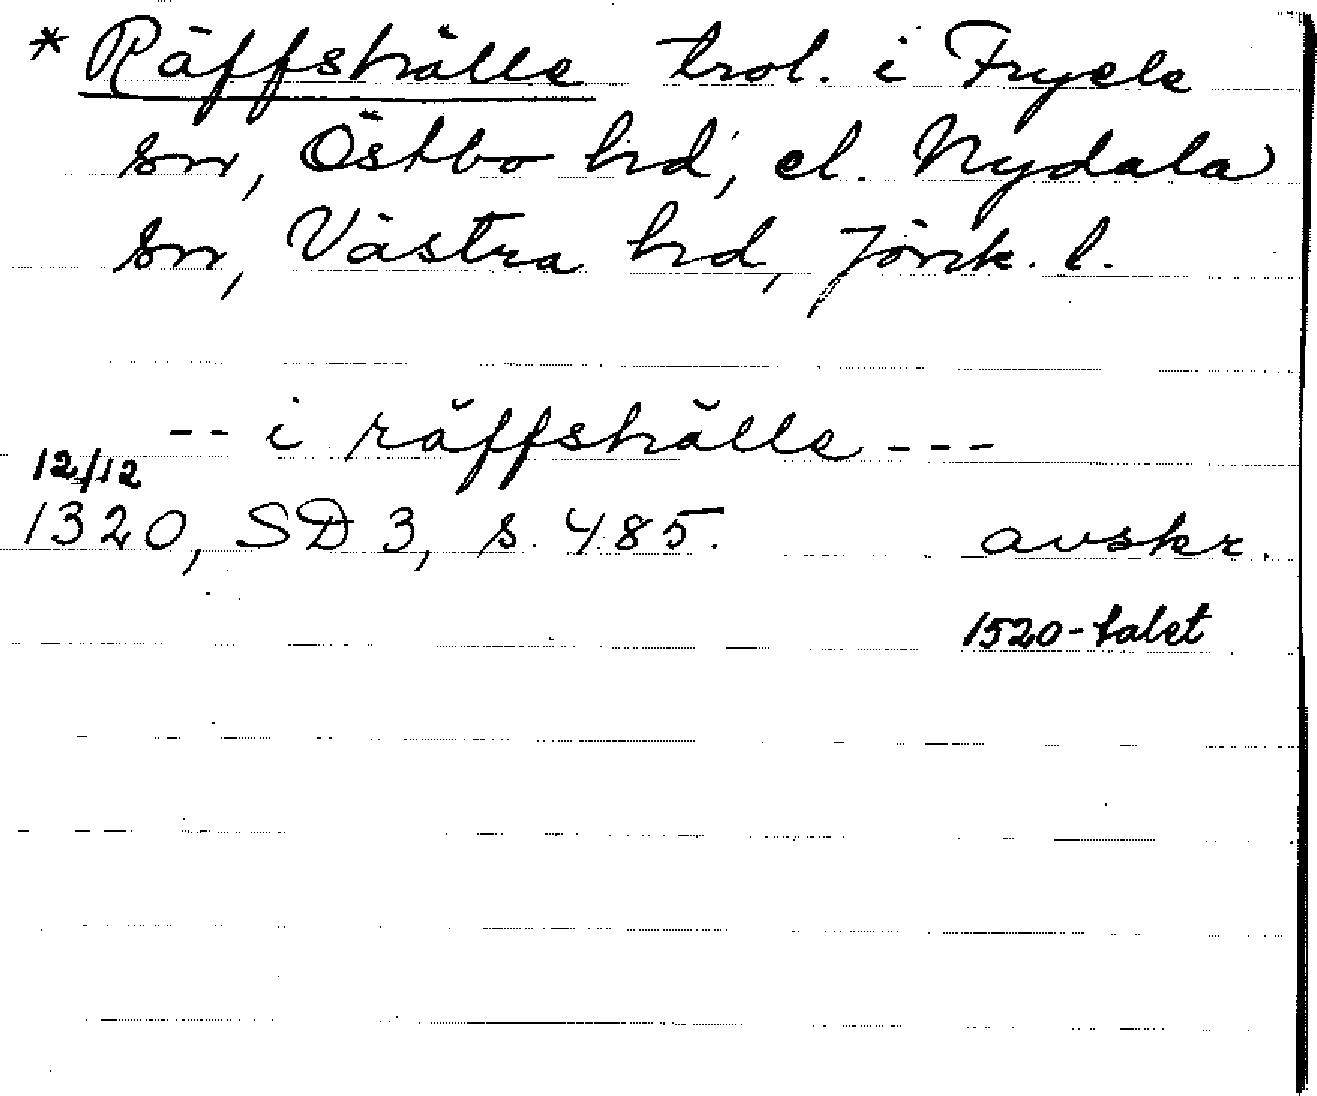 * Räffshälle trol. i Fryele
sn, Östbo hd, el. Nydala
sn, Västra hd, Jönk. l.
-- i räffshälle ---
12/12
1320, SD 3, s. 485. avskr.
1520-talet